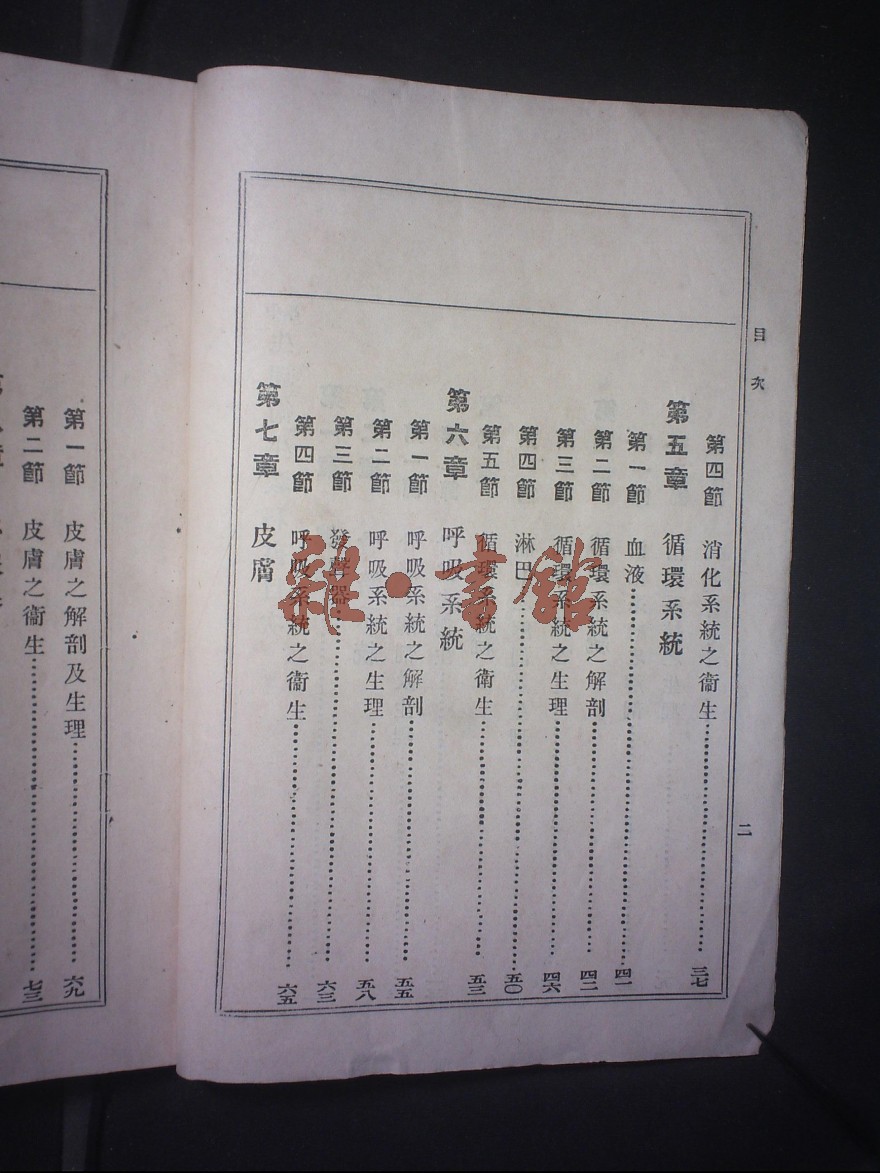 目次
二
第四節 消化系統之衞生……三七
第五章 循環系統
第一節 血液……四一
第二節 循環系統之解剖……四二
第三節 循環系統之生理……四六
第四節 淋巴……五〇
第五節 循環系統之衞生……五三
第六章 呼吸系統
第一節 呼吸系統之解剖……五五
第二節 呼吸系統之生理……五八
第三節 發聲器……六三
第四節 呼吸系統之衞生……六五
第七章 皮膚
第一節 皮膚之解剖及生理……六九
第二節 皮膚之衞生……七三
雜·書館